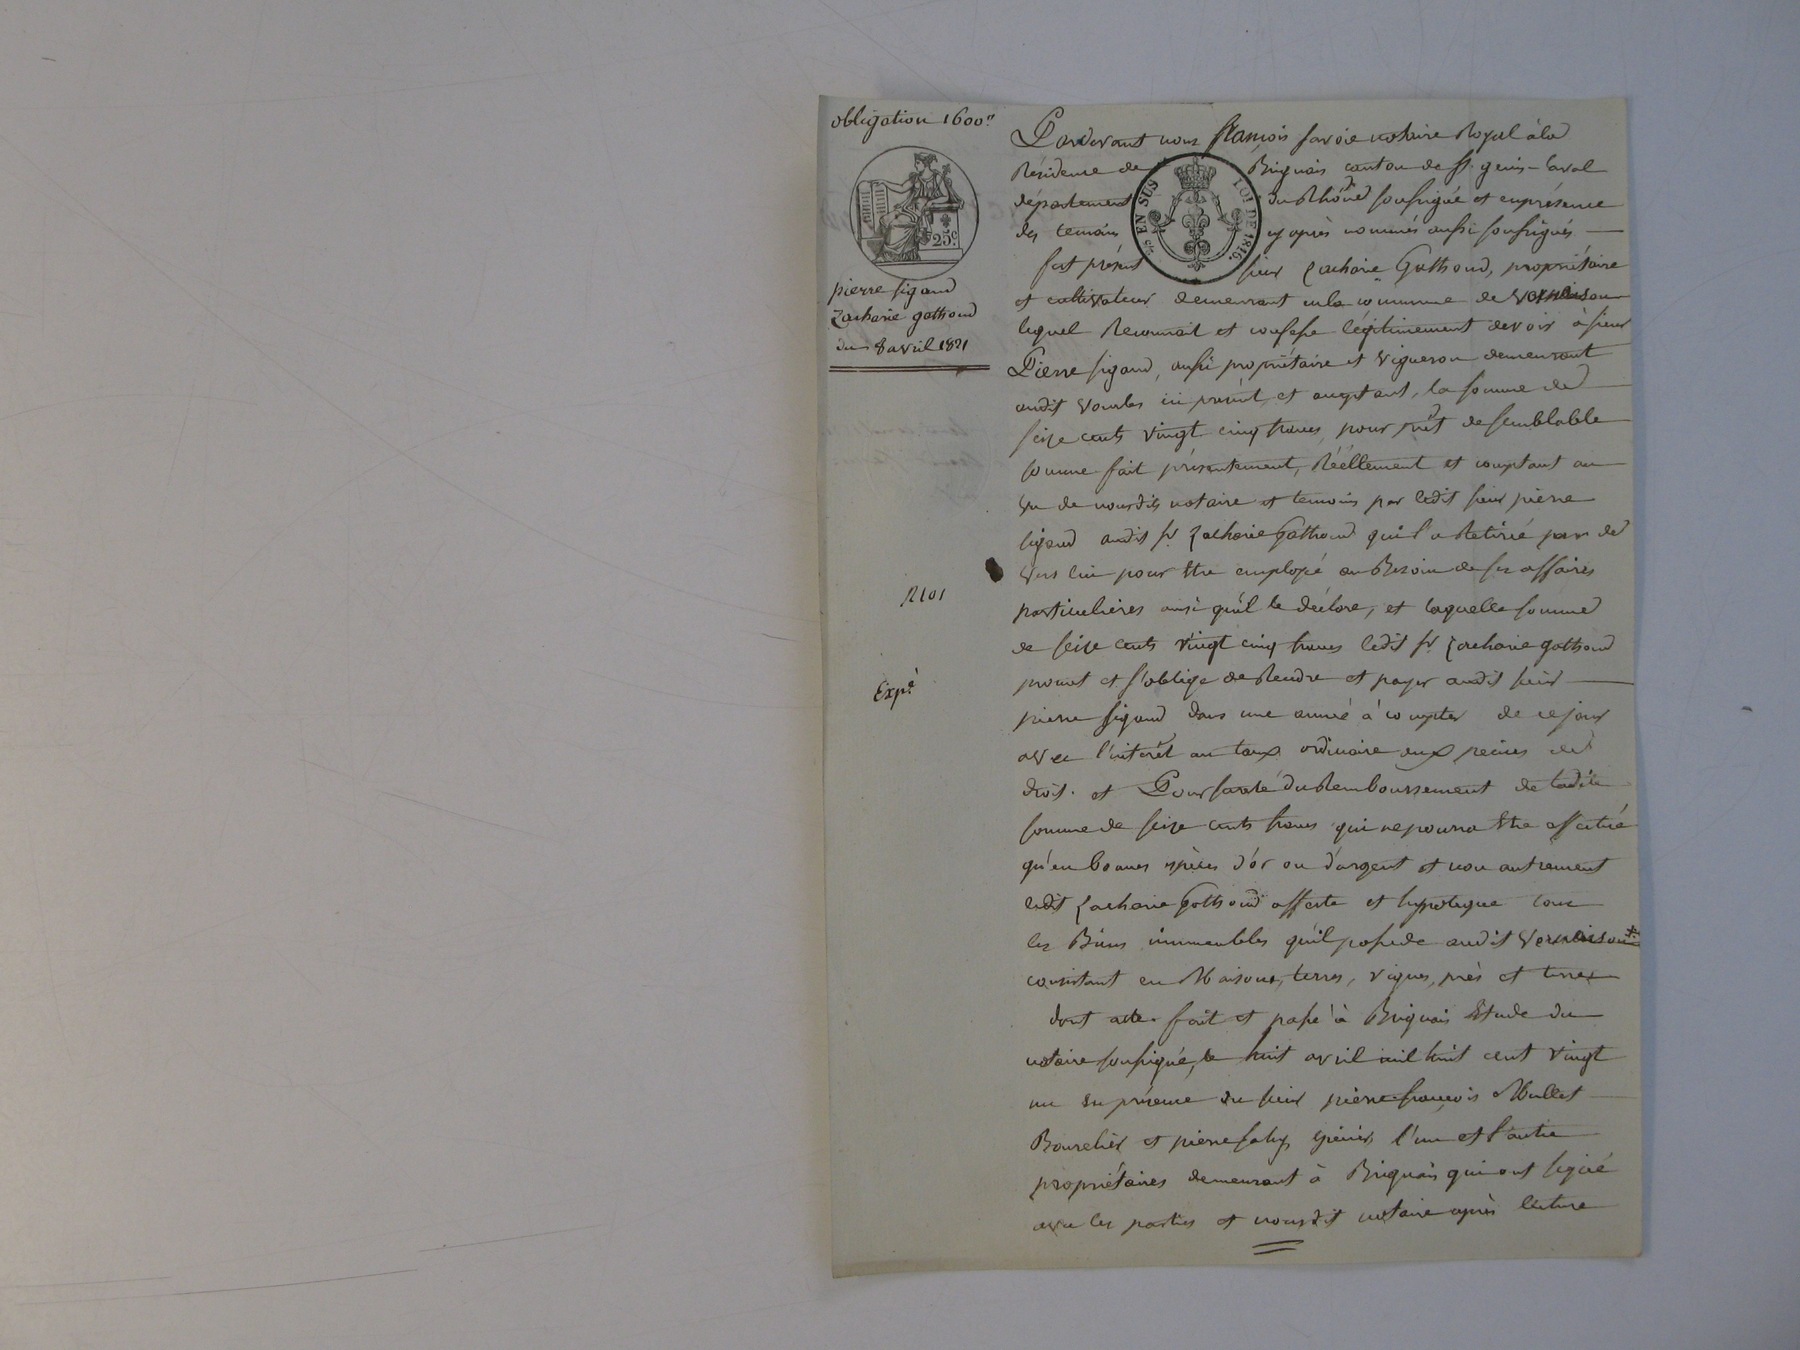 obligation 1600"
25c
pierre sigaud
Zacharie gathoud
du 8 avril 1821
Pardevant nous françois savoie notaire Royal à la
Résidence de Brignais canton de St. genis-Laval
EN SUS LOI DE 1816.
département du Rhône soussigné et en présence
des temoins cy après nommés aussi soussignés
fut présent sieur Zacharie Gathoud, propriétaire
et cultivateur demeurant en la commune de Vernaison
lequel Reconnait et confesse légitimement devoir à sieur
Pierre sigaud, aussi propriétaire et vigneron demeurant
audit Vourles ici présent et acceptant, la somme de
seize cents vingt cinq francs, pour prêt de semblable
somme fait présentement, Réellement et comptant au
vu de nousdits notaire et temoins par ledit sieur pierre
sigaud audit sr. Zacharie Gathoud qui l'a Retirée par de
vers lui pour être employé au Besoin de ses affaires
2101
particulières ainsi qu'il le déclare, et laquelle somme
de seize cents vingt cinq francs ledit sr. Zacharie gathoud
Expé
promet et s'oblige de Rendre et payer audit sieur
pierre sigaud dans une année à compter de ce jour
avec l'intérêt au taux ordinaire aux peines de
droit. et Pour sureté du Remboursement de ladite
somme de seize cents francs qui ne pourra être effectué
qu'en bonnes espèces d'or ou d'argent et non autrement
ledit Zacharie Gathoud affecte et hypoteque tous
les Biens immeubles qu'il possede audit Vernaison
consistant en Maisons, terres, vignes, près et terres
dont acte. fait et passé à Brignais Etude du
notaire soussigné, le huit avril mil huit cent vingt
un En présence du sieur pierre françois Mullet
Bourelier et pierre épicier, l'un et l'autre
propriétaires demeurant à Brignais qui ont signé
avec les parties et nousdit notaire après lecture